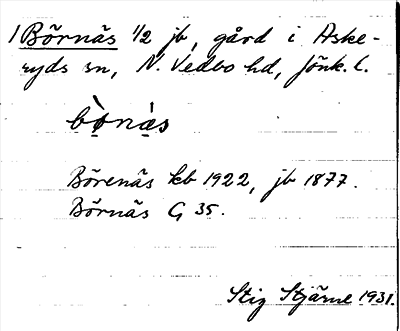 1 Börnäs ½ jb, gård i Aske-
ryds sn, N. Vedbo hd, Jönk. l.
bò̤nà̤s
Börenäs kb 1922, jb 1877.
Börnäs G 35.
Stig Stjärne 1931.